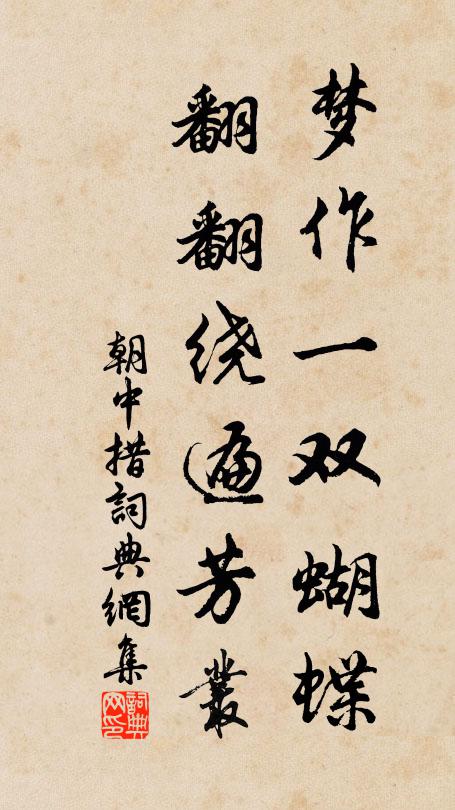 梦作一双蝴蝶
翻翻绕遍芳叢
朝中措詞典網集
詞典网印